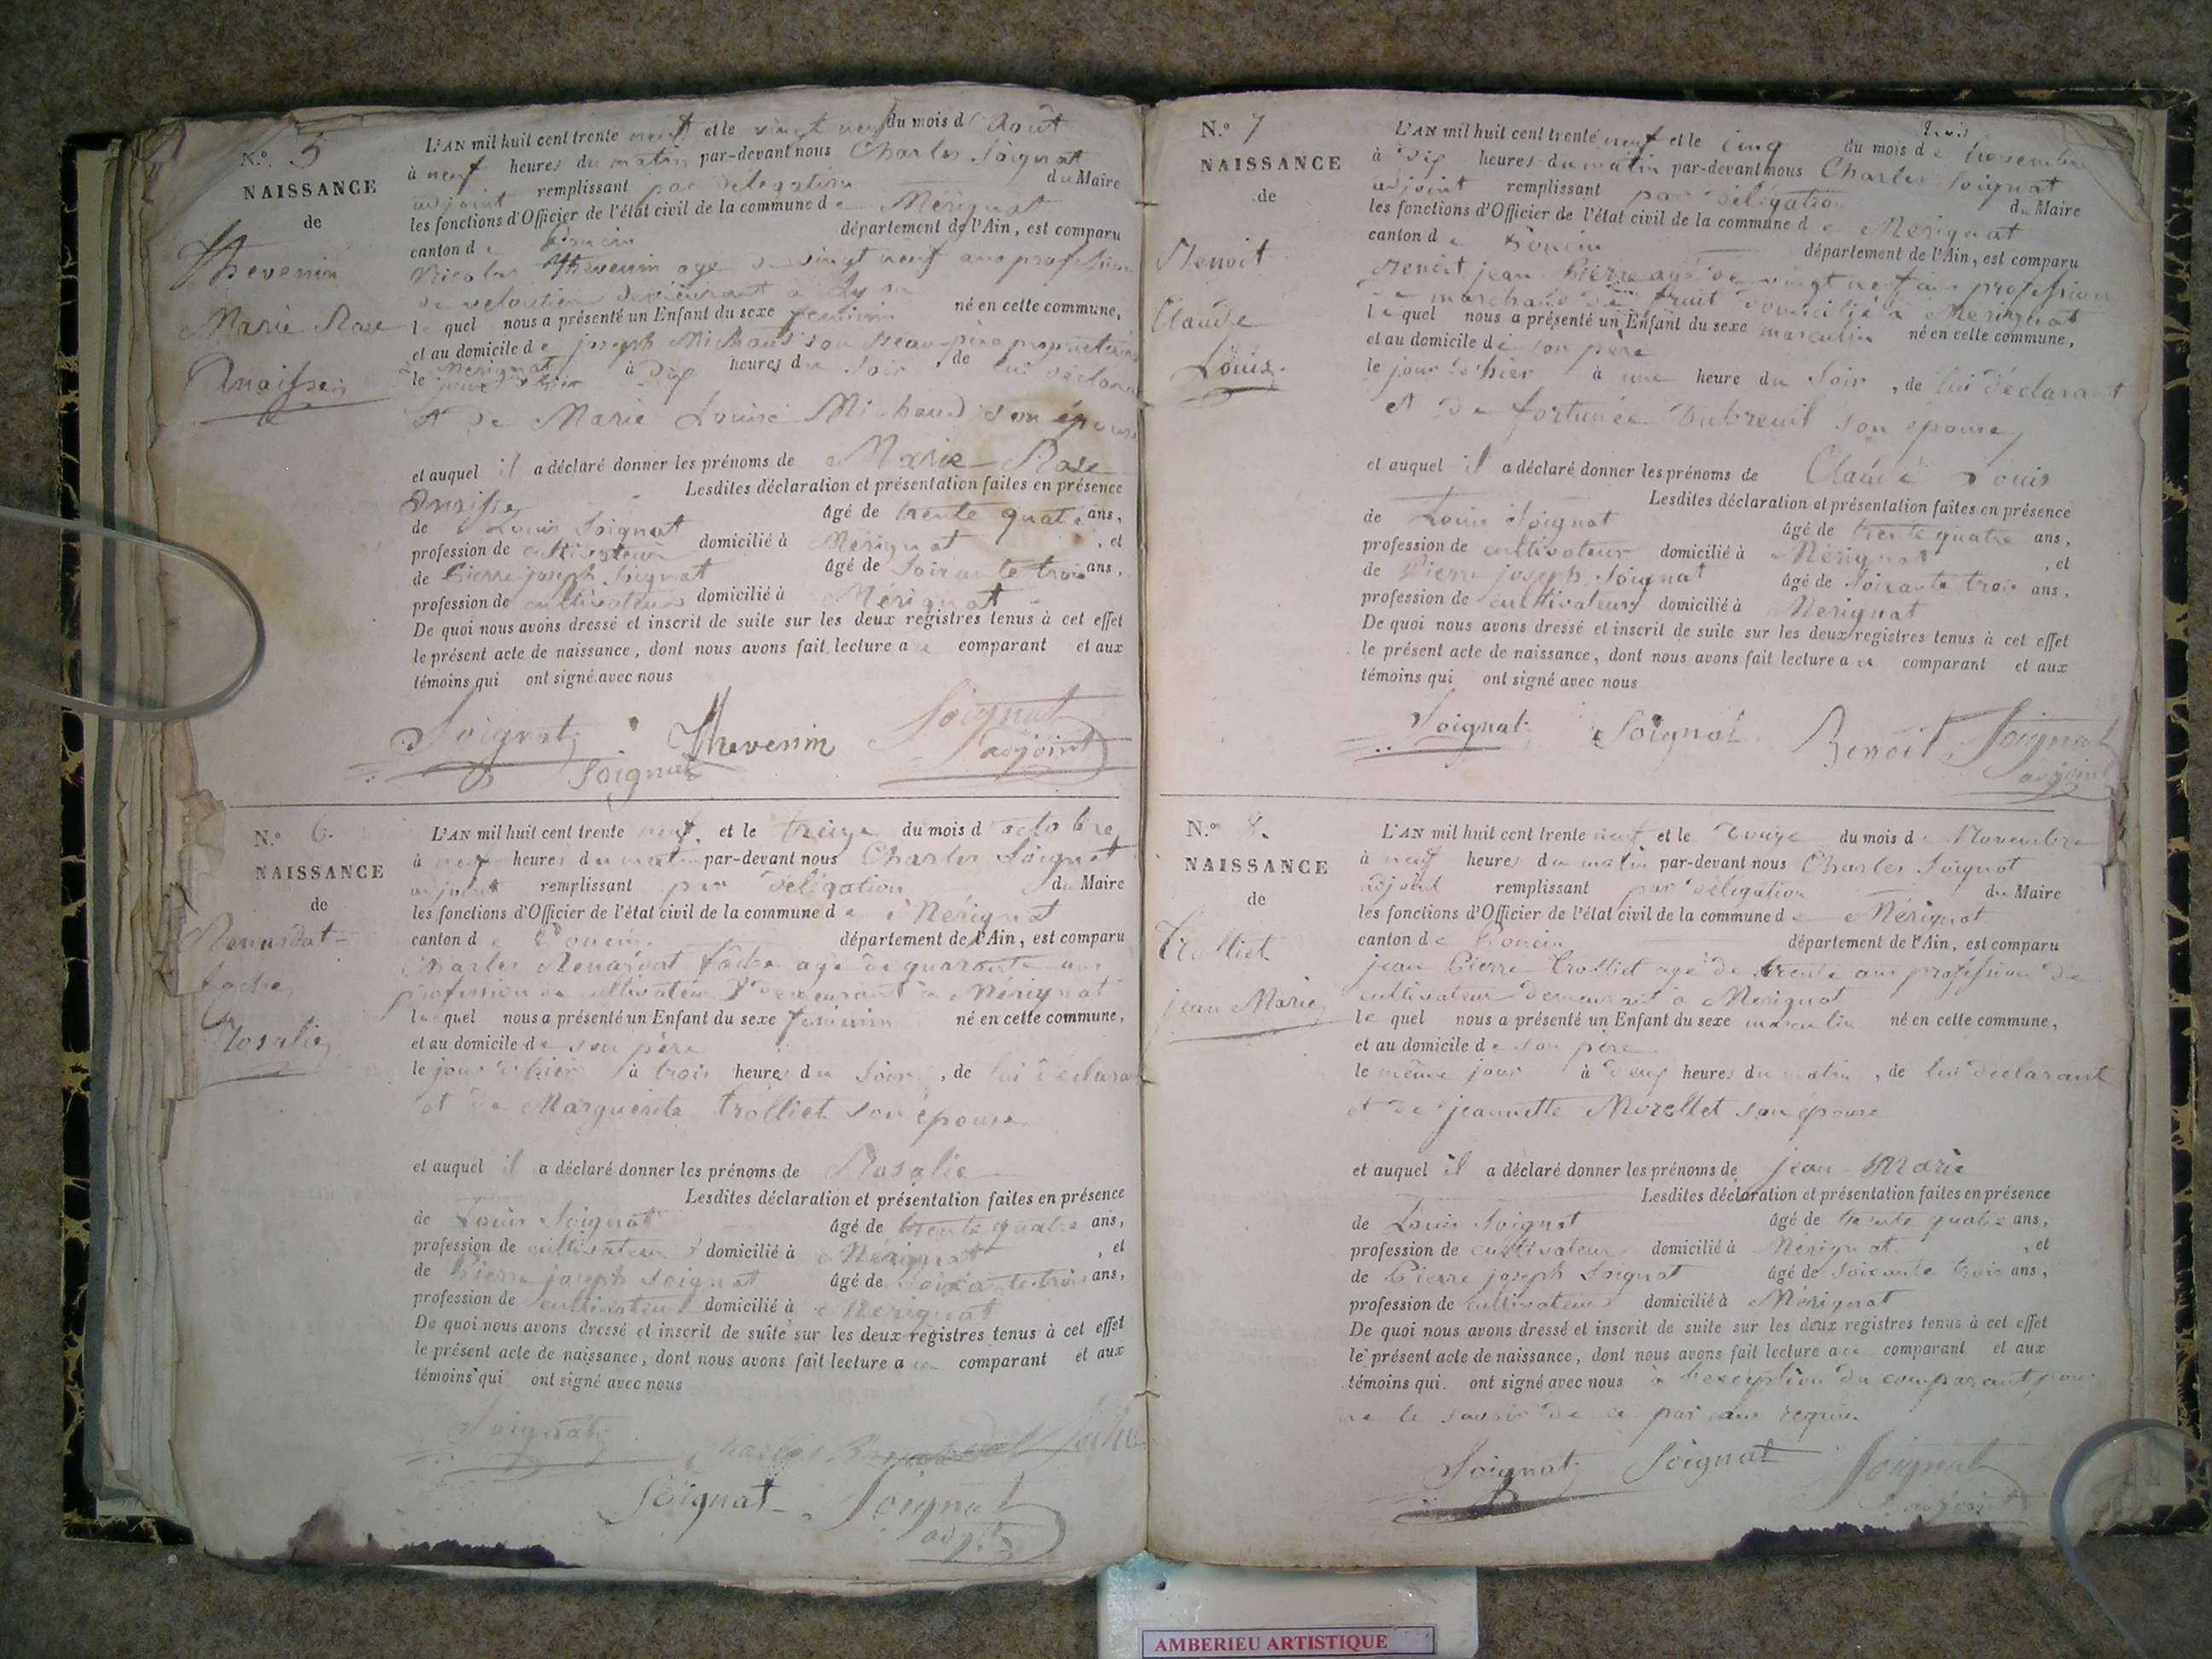 N.º 5
NAISSANCE
de
Thevenin
Marie Rose
Anaïsse
L'AN mil huit cent trente neuf et le vingt neuf du mois d'Août
à neuf heures du matin par-devant nous Charles Soignat
adjoint remplissant par délégation du Maire
les fonctions d'Officier de l'état civil de la commune de Mérignat
canton de Poncin département de l'Ain, est comparu
Nicolas Thevenin agé de vingt neuf ans profession
de veloutier demeurant à Lyon
lequel nous a présenté un Enfant du sexe feminin né en cette commune,
et au domicile de joseph Michaud son beau-père propriétaire
à Mérignat
le jour d'hier à dix heures du soir, de lui déclarant
et de Marie Louise Michaud son épouse
et auquel il a déclaré donner les prénoms de Marie Rose
Anaisse Lesdites déclaration et présentation faites en présence
de Louis Soignat âgé de trente quatre ans,
profession de cultivateur domicilié à Mérignat, et
de Pierre joseph Soignat âgé de soixante trois ans,
profession de cultivateur domicilié à Mérignat
De quoi nous avons dressé et inscrit de suite sur les deux registres tenus à cet effet
le présent acte de naissance, dont nous avons fait lecture au comparant et aux
témoins qui ont signé avec nous
Soignat Thevenin Soignat
Soignat adjoint
N.º 6.
NAISSANCE
de
Renardat
fache
Rosalie
L'AN mil huit cent trente neuf et le treize du mois d'octobre
à neuf heures du matin par-devant nous Charles Soignat
adjoint remplissant par délégation du Maire
les fonctions d'Officier de l'état civil de la commune de Mérignat
canton de Poncin département de l'Ain, est comparu
Charles Renardat fache agé de quarante ans
profession de cultivateur demeurant à Mérignat
lequel nous a présenté un Enfant du sexe feminin né en cette commune,
et au domicile de son père
le jour d'hier à trois heures du soir, de lui déclarant
et de Marguerite trolliet son épouse
et auquel il a déclaré donner les prénoms de Rosalie
Lesdites déclaration et présentation faites en présence
de Louis Soignat âgé de trente quatre ans,
profession de cultivateur domicilié à Mérignat, et
de Pierre joseph Soignat âgé de soixante trois ans,
profession de cultivateur domicilié à Mérignat
De quoi nous avons dressé et inscrit de suite sur les deux registres tenus à cet effet
le présent acte de naissance, dont nous avons fait lecture au comparant et aux
témoins qui ont signé avec nous
Soignat Charles Renardat fache
Soignat Soignat
adjt
N.º 7
NAISSANCE
de
Benoit
Claude
Louis
L'AN mil huit cent trente neuf et le cinq du mois de novembre
à dix heures du matin par-devant nous Charles Soignat
adjoint remplissant par délégation du Maire
les fonctions d'Officier de l'état civil de la commune de Mérignat
canton de Poncin département de l'Ain, est comparu
Benoit jean Pierre agé de vingt neuf ans profession
de marchand de fruit domicilié à Mérignat
lequel nous a présenté un Enfant du sexe masculin né en cette commune,
et au domicile de son père
le jour d'hier à une heure du soir, de lui déclarant
et de fortunée Dubreuil son épouse
et auquel il a déclaré donner les prénoms de Claude Louis
Lesdites déclaration et présentation faites en présence
de Louis Soignat âgé de trente quatre ans,
profession de cultivateur domicilié à Mérignat, et
de Pierre joseph Soignat âgé de soixante trois ans,
profession de cultivateur domicilié à Mérignat
De quoi nous avons dressé et inscrit de suite sur les deux registres tenus à cet effet
le présent acte de naissance, dont nous avons fait lecture au comparant et aux
témoins qui ont signé avec nous
Soignat Soignat Benoit Soignat
adjoint
N.º 8.
NAISSANCE
de
Trolliet
jean Marie
L'AN mil huit cent trente neuf et le douze du mois de Novembre
à neuf heures du matin par-devant nous Charles Soignat
adjoint remplissant par délégation du Maire
les fonctions d'Officier de l'état civil de la commune de Mérignat
canton de Poncin département de l'Ain, est comparu
jean Pierre trolliet agé de trente ans profession de
cultivateur demeurant à Mérignat
lequel nous a présenté un Enfant du sexe masculin né en cette commune,
et au domicile de son père
le même jour à deux heures du matin, de lui déclarant
et de jeannette Morellet son épouse
et auquel il a déclaré donner les prénoms de jean Marie
Lesdites déclaration et présentation faites en présence
de Louis Soignat âgé de trente quatre ans,
profession de cultivateur domicilié à Mérignat, et
de Pierre joseph Soignat âgé de soixante trois ans,
profession de cultivateur domicilié à Mérignat
De quoi nous avons dressé et inscrit de suite sur les deux registres tenus à cet effet
le présent acte de naissance, dont nous avons fait lecture au comparant et aux
témoins qui ont signé avec nous à l'exception du comparant pour
ne le savoir de ce par nous requis.
Soignat Soignat Soignat
adjoint
AMBERIEU ARTISTIQUE